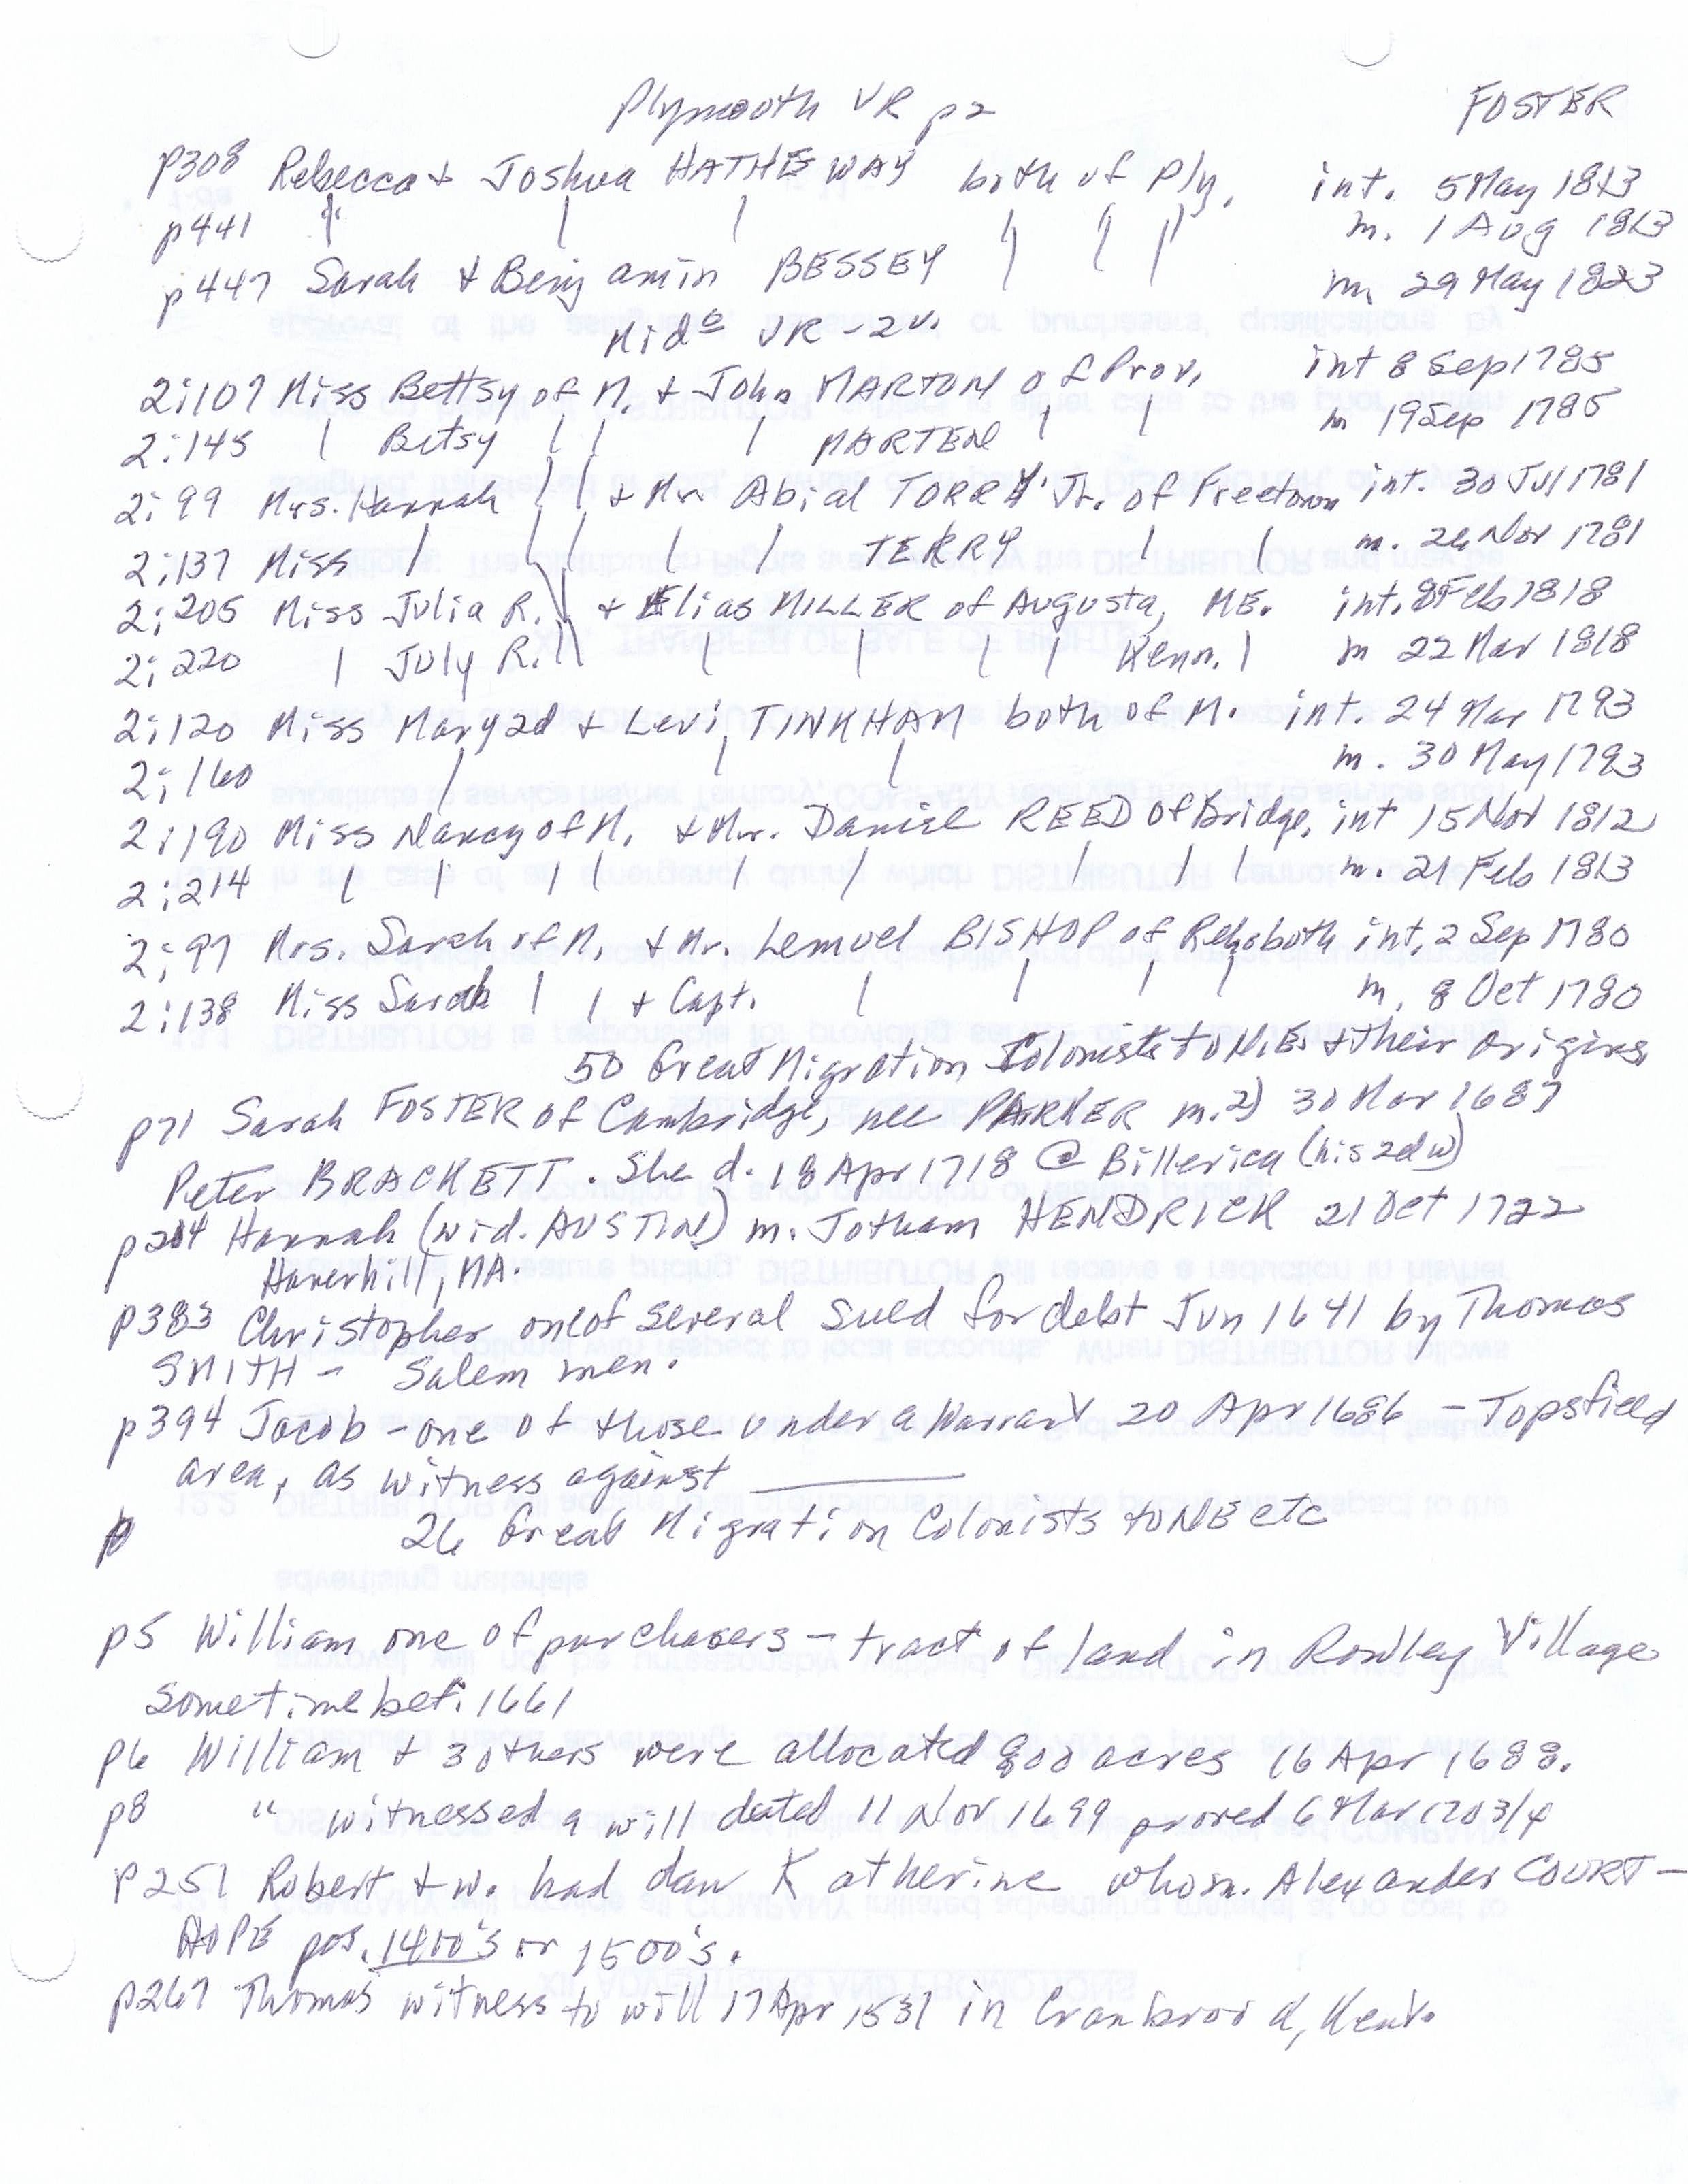 Plymouth VR p2 FOSTER
p308 Rebecca + Joshua HATHEWAY both of Ply. int. 5 May 1813
p441 | | | | | | m. 1 Aug 1813
p447 Sarah + Benjamin BESSEY | | | m. 29 May 1823
Mido VR - 2v.
2:107 Miss Bettsy of M. + John MARTON of Prov. int 8 Sep 1785
2:145 | Betsy | | | MARTEN | | m 19 Sep 1785
2:99 Mrs. Hannah | | + Mr. Abial TORRY Jr. of Freetown int. 30 Jul 1781
2:137 Miss | | | | | TERRY | | m. 26 Nov 1781
2:205 Miss Julia R. | | + Elias MILLER of Augusta, ME. int. 8 Feb 1818
2:220 | July R. | | | | | | Kenn. | m 22 Mar 1818
2:120 Miss Mary 2d + Levi TINKHAM both of M. int. 24 Mar 1793
2:160 | | | m. 30 May 1793
2:190 Miss Nancy of M. + Mr. Daniel REED of Bridge. int 15 Nov 1812
2:214 | | | | | | | | | m. 21 Feb 1813
2:97 Mrs. Sarah of M. + Mr. Lemuel BISHOP of Rehoboth int. 2 Sep 1780
2:138 Miss Sarah | | + Capt. | | | | m. 8 Oct 1780
50 Great Migration Colonists to N.E. + their origins
p71 Sarah FOSTER of Cambridge, nee PARKER m.2) 30 Mar 1687
Peter BRACKETT. She d. 18 Apr 1718 @ Billerica (his 2d w)
p204 Hannah (wid. AUSTIN) m. Jotham HENDRICK 21 Oct 1722
Haverhill, MA.
p383 Christopher one of several sued for debt Jun 1641 by Thomas
SMITH - Salem men.
p394 Jacob - one of those under a Warrant 20 Apr 1686 - Topsfield
area, as witness against ______
p 26 Great Migration Colonists to NE etc
p5 William one of purchasers - tract of land in Rowley Village
sometime bef. 1661
p6 William + 3 others were allocated 800 acres 16 Apr 1688.
p8 " witnessed a will dated 11 Nov 1699 proved 6 Mar 1703/4
p251 Robert + w. had dau Katherine who m. Alexander COURT-
HOPE pos. 1400's or 1500's.
p267 Thomas witness to will 17 Apr 1531 in Cranbrood, Kent.